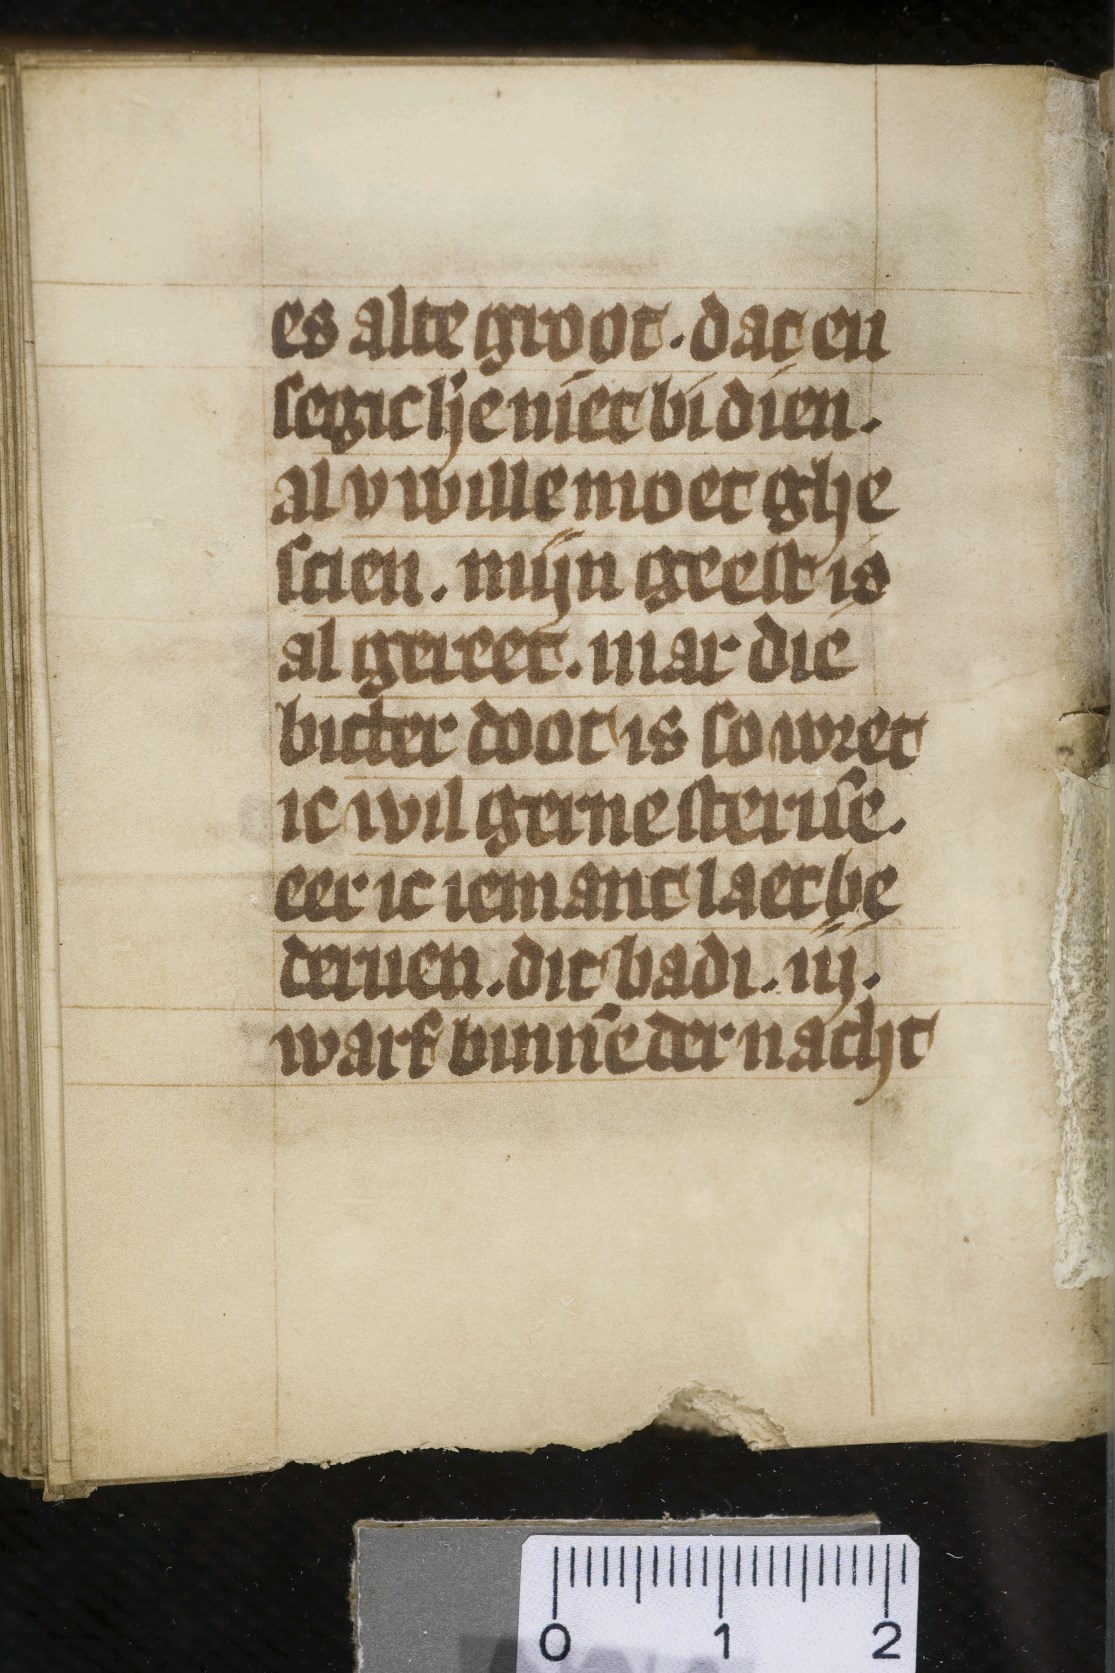 es alte groot. dat en
segic h̾e niet bi dien.
al v wille moet ghe
scien. mijn geest is
al gereet. mar die
bitter doot is so wret
ic wil gerne steruē.
eer ic iemant laet be
deruen. dit badi. iij.
warf binnē der nacht
0 1 2